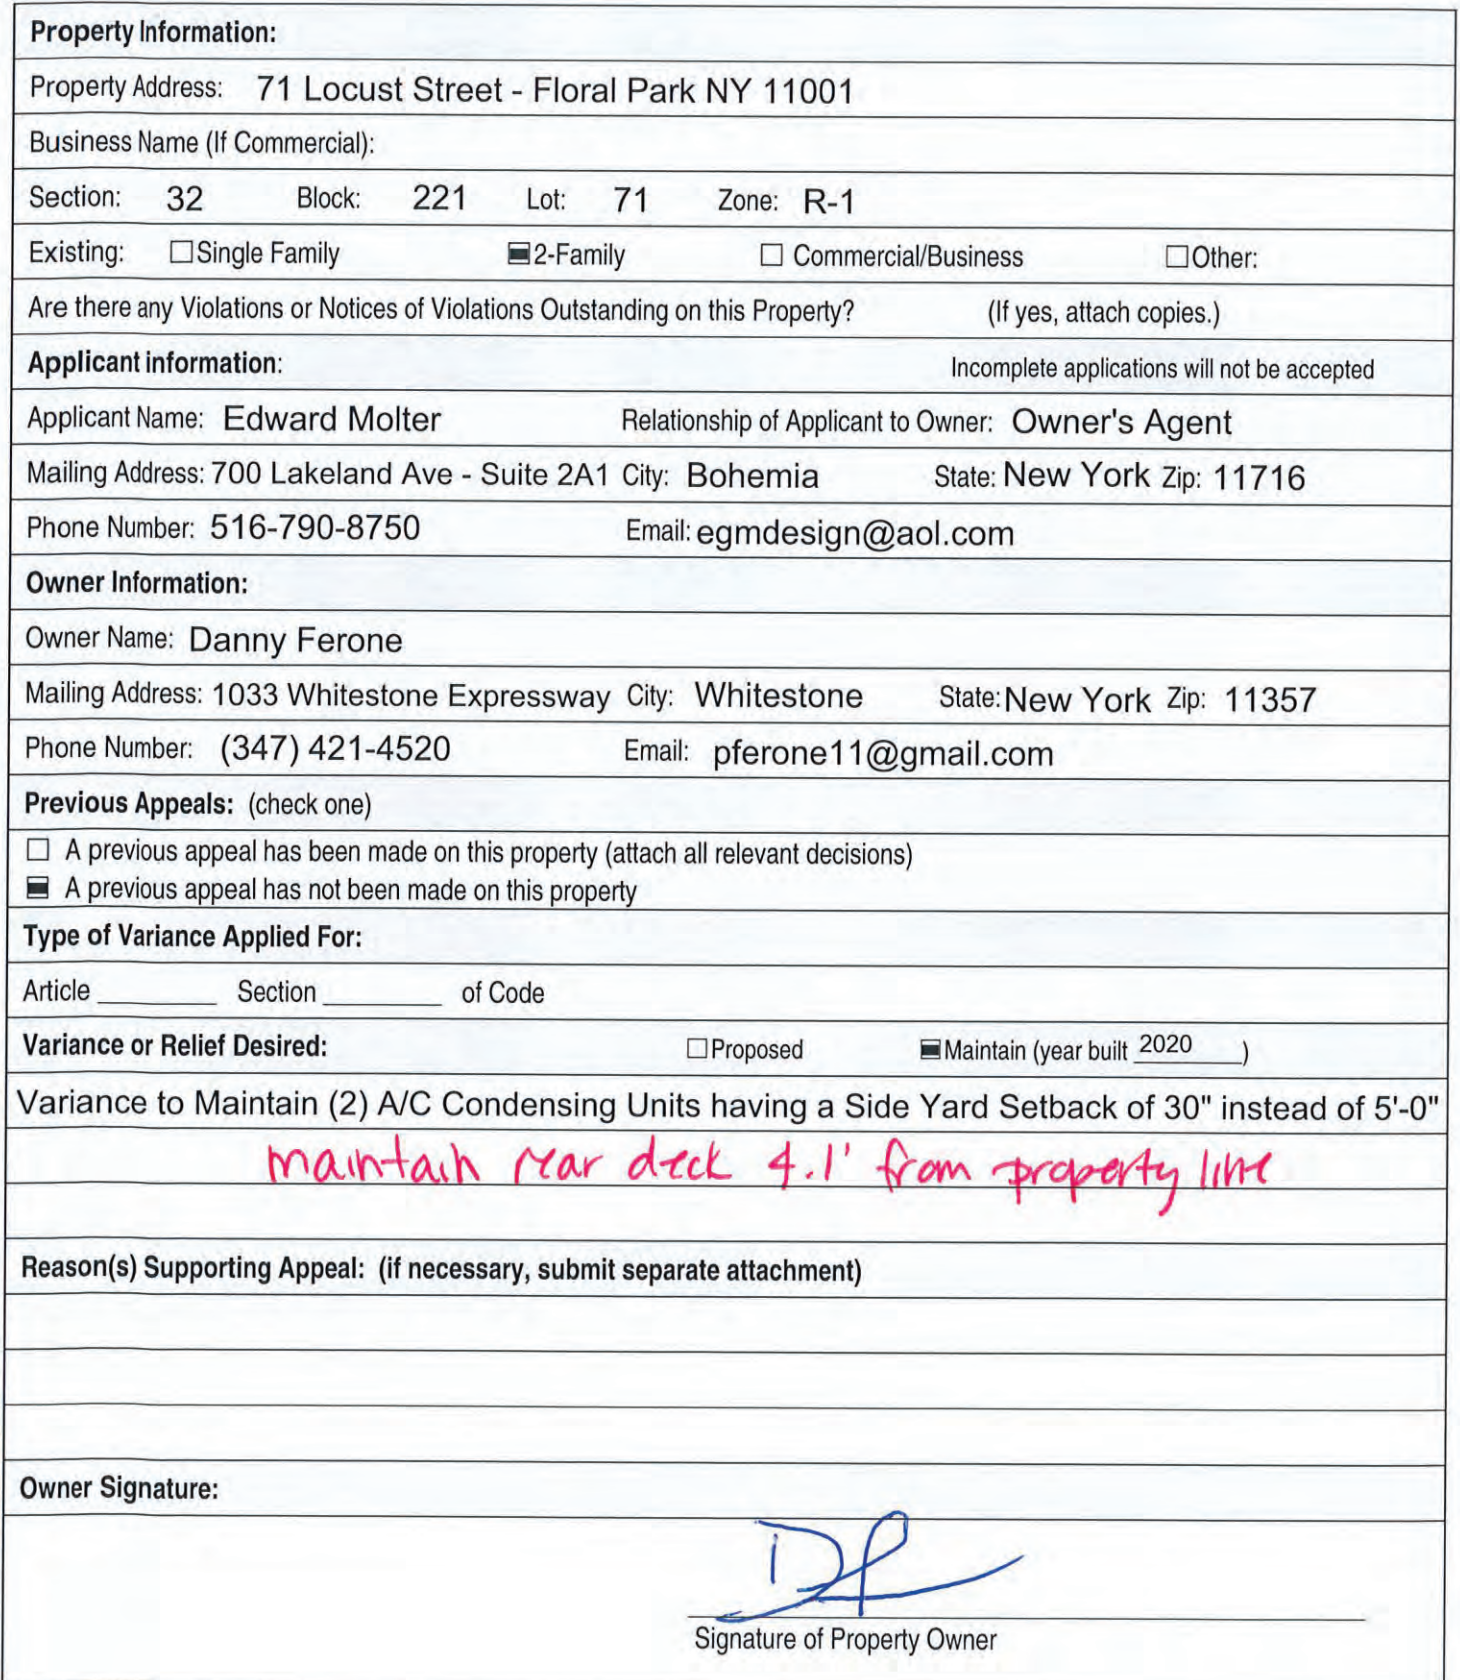 Property Information:
Property Address: 71 Locust Street - Floral Park NY 11001
Business Name (If Commercial):
Section: 32 Block: 221 Lot: 71 Zone: R-1
Existing: ☐Single Family ☒2-Family ☐ Commercial/Business ☐Other:
Are there any Violations or Notices of Violations Outstanding on this Property? (If yes, attach copies.)
Applicant information: Incomplete applications will not be accepted
Applicant Name: Edward Molter Relationship of Applicant to Owner: Owner's Agent
Mailing Address: 700 Lakeland Ave - Suite 2A1 City: Bohemia State: New York Zip: 11716
Phone Number: 516-790-8750 Email: egmdesign@aol.com
Owner Information:
Owner Name: Danny Ferone
Mailing Address: 1033 Whitestone Expressway City: Whitestone State: New York Zip: 11357
Phone Number: (347) 421-4520 Email: pferone11@gmail.com
Previous Appeals: (check one)
☐ A previous appeal has been made on this property (attach all relevant decisions)
☒ A previous appeal has not been made on this property
Type of Variance Applied For:
Article ________ Section ________ of Code
Variance or Relief Desired: ☐Proposed ☒Maintain (year built 2020 )
Variance to Maintain (2) A/C Condensing Units having a Side Yard Setback of 30" instead of 5'-0"
maintain rear deck 4.1' from property line
Reason(s) Supporting Appeal: (if necessary, submit separate attachment)
Owner Signature:
Signature of Property Owner